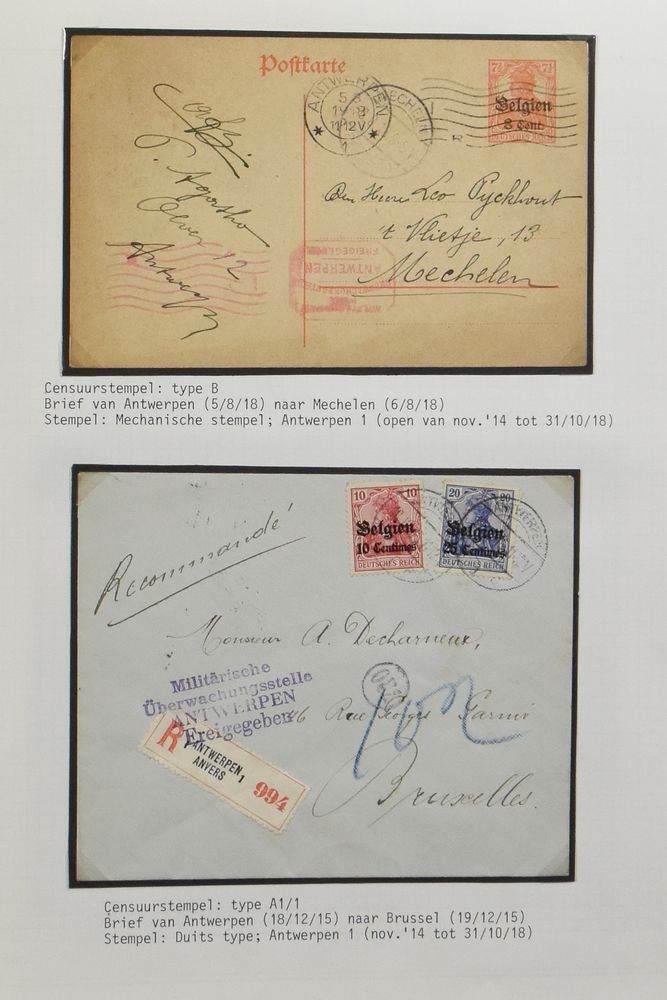 Postkarte
ANTWERPEN
5-8
1918
11-12V
1
MECHELN
7½ 7½
Belgien
8 Cent.
Den Heere Leo Pyckhout
't Vlietje, 13
Mechelen
12
Antwerpen
ANTWERPEN
FREIGEGEBEN
Censuurstempel: type B
Brief van Antwerpen (5/8/18) naar Mechelen (6/8/18)
Stempel: Mechanische stempel; Antwerpen 1 (open van nov.'14 tot 31/10/18)
10 10
Belgien
10 Centimes
DEUTSCHES REICH
20 20
Belgien
25 Centimes
DEUTSCHES REICH
ANTWERPEN
Recommandé
Monsieur A. Decharneux,
Militärische
Überwachungsstelle
ANTWERPEN
Freigegeben
Rue Georges
Bruxelles.
R ANTWERPEN 1
ANVERS
994
Censuurstempel: type A1/1
Brief van Antwerpen (18/12/15) naar Brussel (19/12/15)
Stempel: Duits type; Antwerpen 1 (nov.'14 tot 31/10/18)